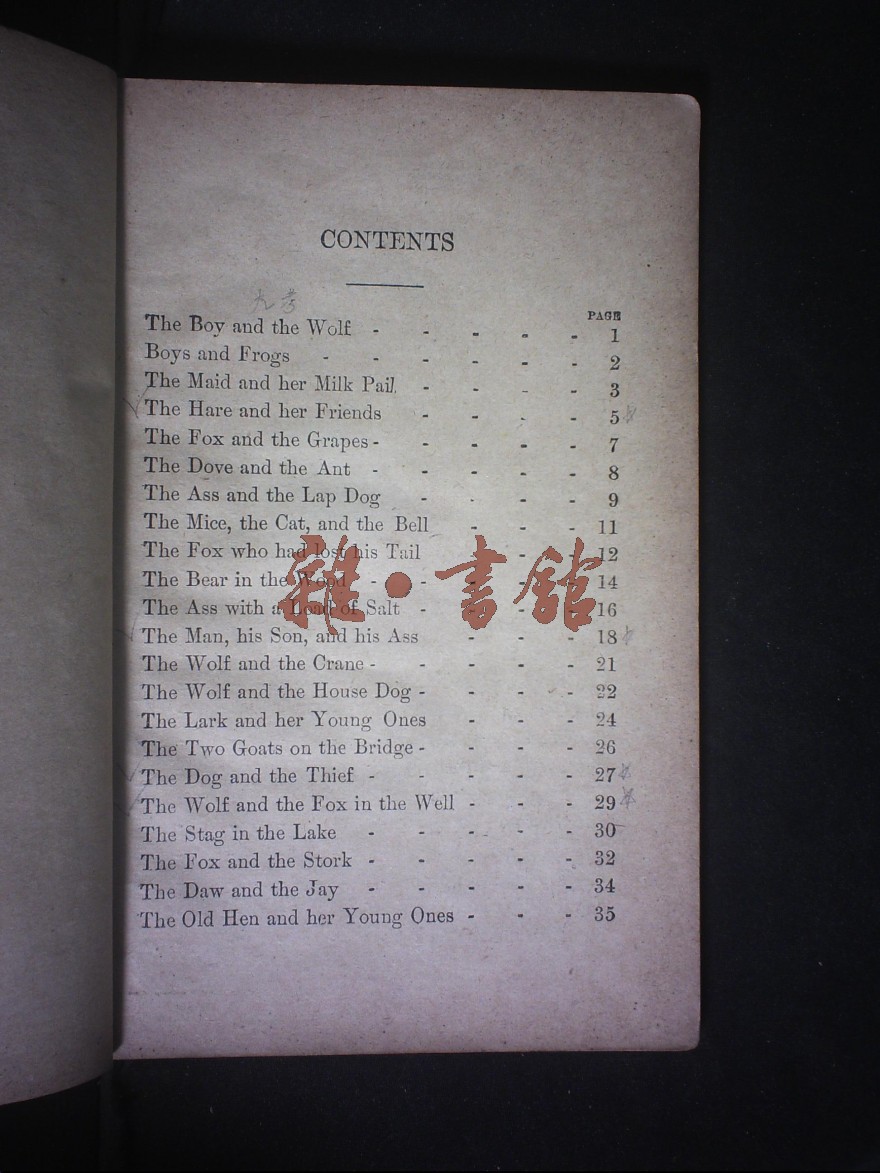 CONTENTS
PAGE
The Boy and the Wolf - - - - - 1
Boys and Frogs - - - - - - 2
The Maid and her Milk Pail - - - - 3
The Hare and her Friends - - - - 5
The Fox and the Grapes - - - - - 7
The Dove and the Ant - - - - - 8
The Ass and the Lap Dog - - - - 9
The Mice, the Cat, and the Bell - - - 11
The Fox who had lost his Tail - - - 12
The Bear in the Wood - - - - - 14
The Ass with a Load of Salt - - - - 16
The Man, his Son, and his Ass - - - 18
The Wolf and the Crane - - - - - 21
The Wolf and the House Dog - - - - 22
The Lark and her Young Ones - - - 24
The Two Goats on the Bridge - - - - 26
The Dog and the Thief - - - - - 27
The Wolf and the Fox in the Well - - - 29
The Stag in the Lake - - - - - 30
The Fox and the Stork - - - - - 32
The Daw and the Jay - - - - - 34
The Old Hen and her Young Ones - - - 35
雜·書館